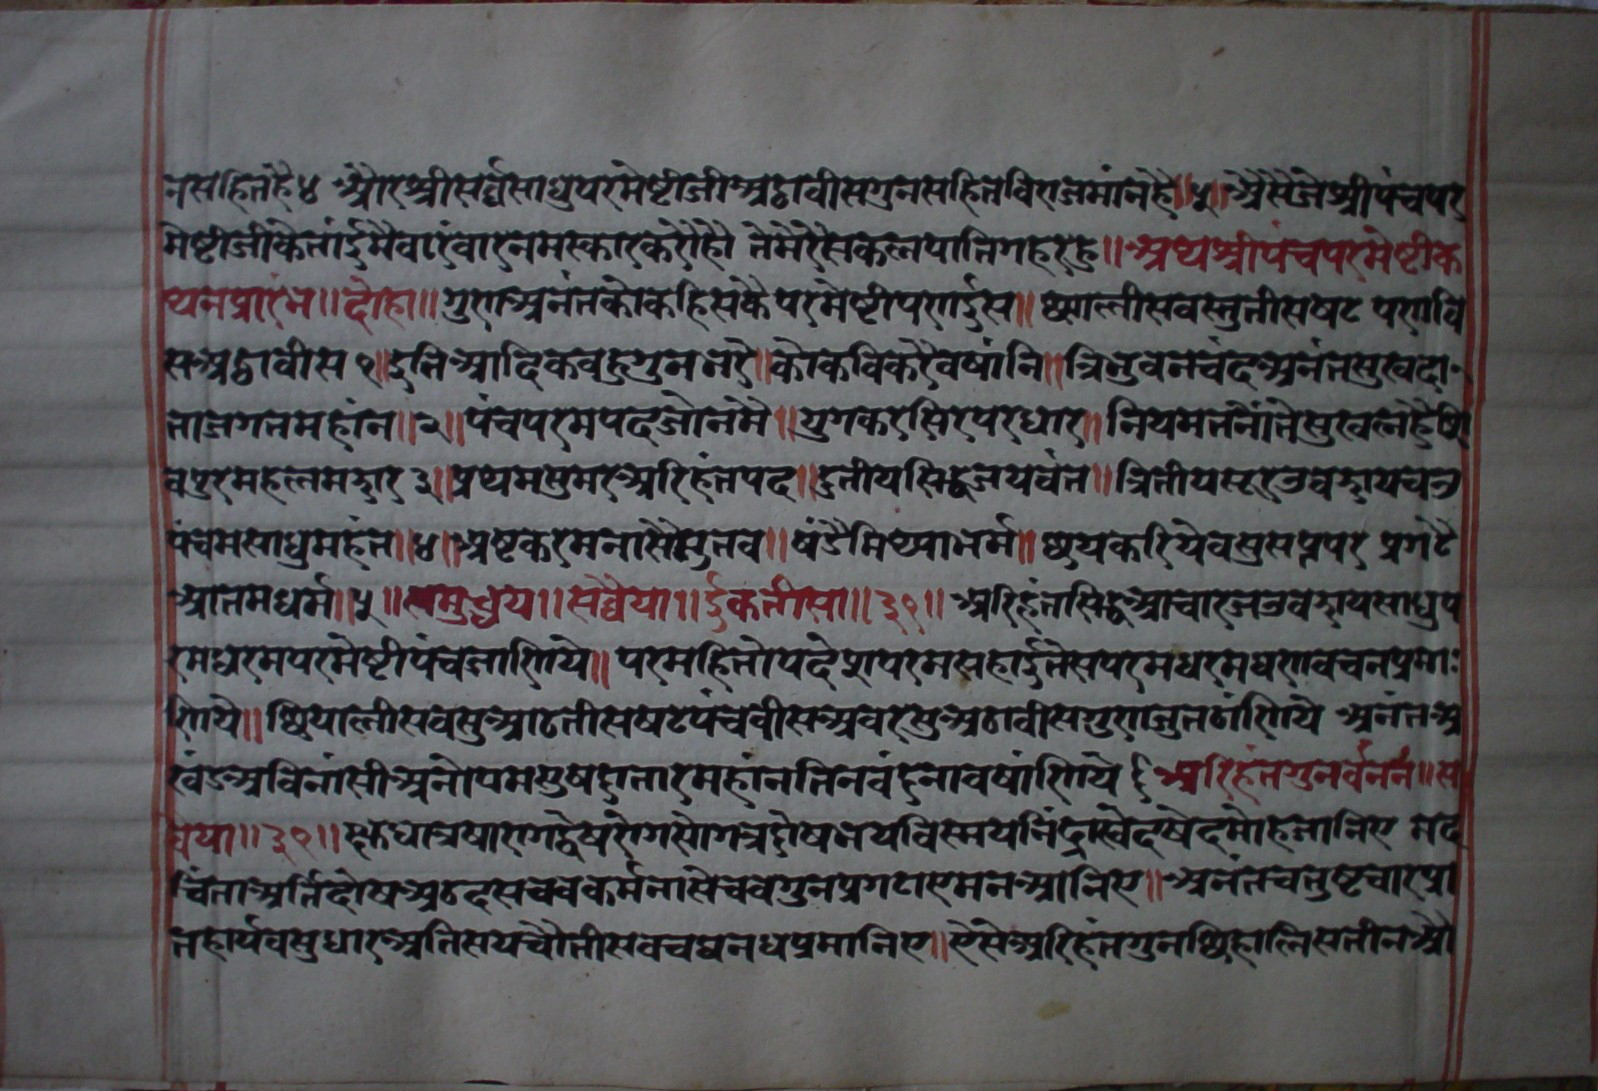 नसहितहै ४ औरश्रीसर्वसाधुपरमेष्टीजीअठावीसगुनसहितविराजमांनहै॥५॥ऐसैजेश्रीपंचपर
मेष्टीजीकैतांईमैवारंवारनमस्कारकरौहौ तेमेरैसकलपातिगहरहु॥अथश्रीपंचपरमेष्टीक
थनप्रारंभ॥दोहा॥गुणअनंतकोकहिसकै परमेष्टीपणईस॥छ्यालीसवस्तुतीसषट पणवि
सअठावीस १॥इतिआदिकवहुगुनभरे॥कोकविकरैवषांनि॥त्रिभुवनचंदअनंतसुखदा
ताजगतमहांन॥२॥पंचपरमपदजोनमै॥युगकरसिरपरधार॥नियमततैंतेसुखलहै
वपुरमहलमझार ३॥प्रथमसुमरअरिहंतपद॥दुतीयसिद्धजयवंत॥त्रितीयसूरउवझायचउ
पंचमसाधुमहंत॥४॥अष्टकरमनासैतव॥षंडैमिथ्याभर्म॥ प्रगटै
आतमधर्म॥५॥समुच्चय॥सवैया॥ईकतीसा॥३१॥अरिहंतसिद्धआचारजउवझायसाधुप
रमधरमपरमेष्टीपंचजाणिये॥परमहितोपदेशपरमसहाईतेसपरमधरमधरावचनप्रमा
णिये॥छियालीसवसुआठतीसषटपंचवीसअवरसुअठावीसगुणजुतठांणिये अनंतअ
खंडअविनांसीअनोपमसुषदातारमहांनतिनवंदनावषांणिये अरिहंतगुनवर्नन॥स
वैया॥३१॥षारागद्वेषरोगसोगदोषभयविस्मयनिंद्रास्वेदषेदमोहजानिए मद
चिंताअर्तिदोषअठदसचवकर्मनासैचवगुनप्रगटाएमनआनिए॥अनंतचतुष्टचारप्रा
तहार्यवसुधारअतिसयचौतीसवचप्रमानिए॥एैसेअरिहंतगुनछिहालिसतीनऔ